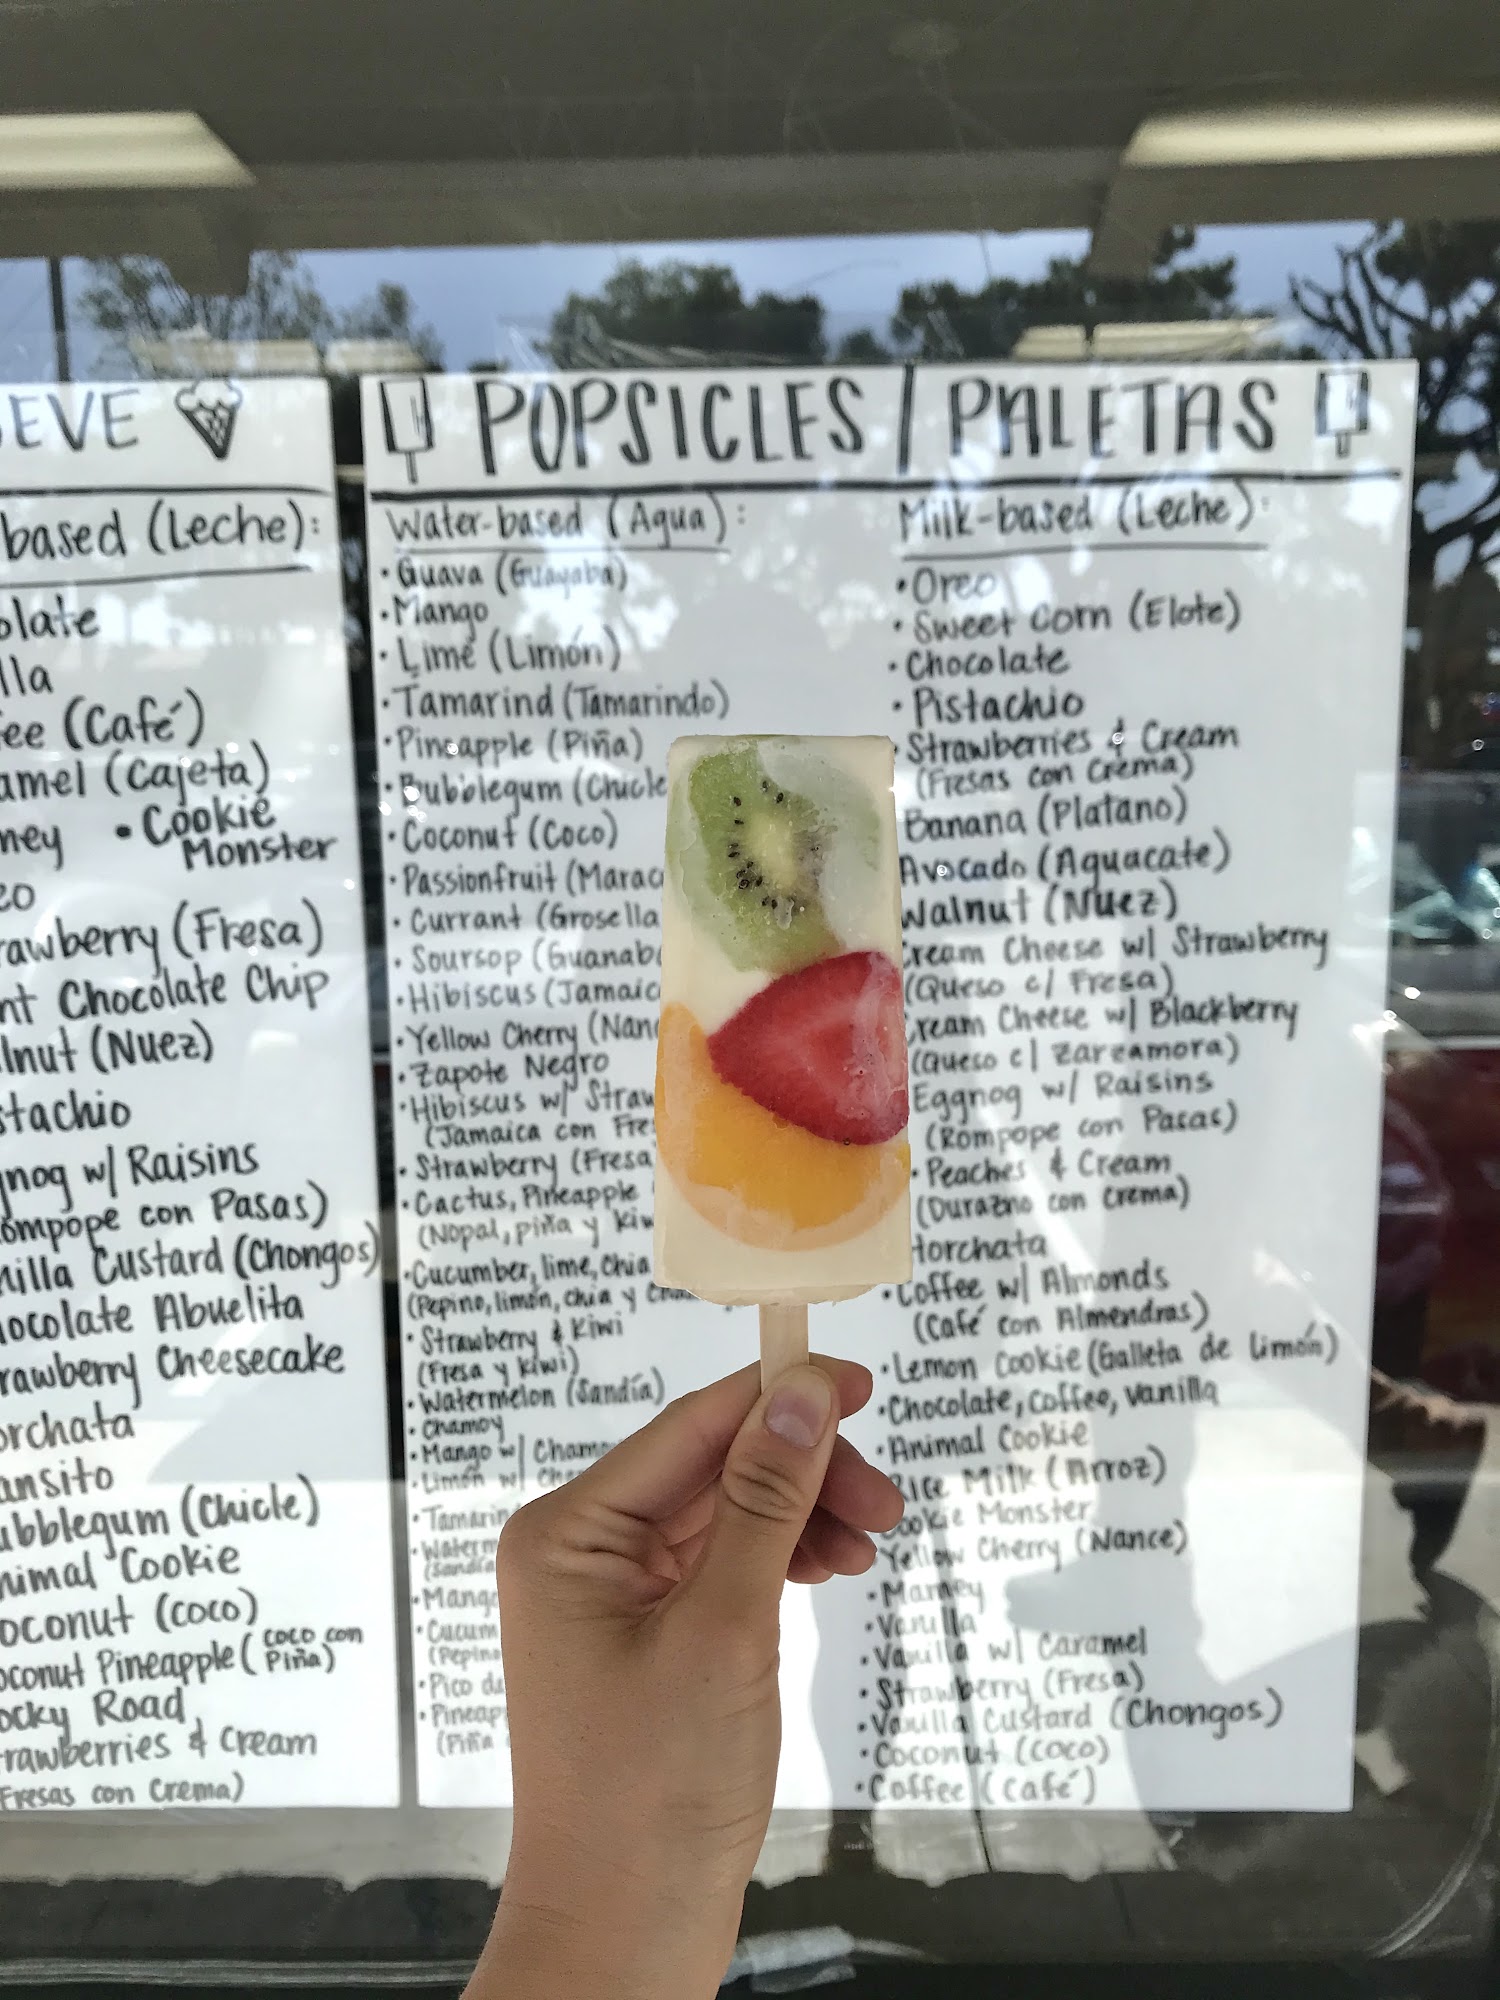 EVE
based (Leche):
olate
lla
ee (Café)
amel (Cajeta)
ney • Cookie
Monster
eo
rawberry (Fresa)
nt Chocolate Chip
lnut (Nuez)
stachio
gnog w/ Raisins
ompope con Pasas)
nilla Custard (Chongos)
ocolate Abuelita
rawberry Cheesecake
orchata
ansito
ubblegum (Chicle)
nimal Cookie
oconut (coco)
oconut Pineapple (coco con
Piña)
ocky Road
rawberries & Cream
Fresas con Crema)
POPSICLES / PALETAS
Water-based (Agua):
• Guava (Guayaba)
• Mango
• Lime (Limón)
• Tamarind (Tamarindo)
• Pineapple (Piña)
• Bubblegum (Chicle
• Coconut (Coco)
• Passionfruit (Marac
• Currant (Grosella
• Soursop (Guanab
• Hibiscus (Jamaic
• Yellow Cherry (Nan
• Zapote Negro
• Hibiscus w/ Straw
(Jamaica con Fre
• Strawberry (Fresa
• Cactus, Pineapple
(Nopal, piña y kiw
• Cucumber, lime, chia
(Pepino, limón, chia y
• Strawberry & Kiwi
(Fresa y kiwi)
• Watermelon (Sandía)
• Chamoy
• Mango w/ Chamo
• Limón w/ Cha
• Tamarin
• Waterm
(Sandía
• Mango
• Cucum
(Pepino
• Pico de
• Pineap
(Piña
Milk-based (Leche):
• Oreo
• Sweet Corn (Elote)
• Chocolate
• Pistachio
• Strawberries & Cream
(Fresas con Crema)
Banana (Platano)
Avocado (Aguacate)
Walnut (Nuez)
Cream Cheese w/ Strawberry
(Queso c/ Fresa)
Cream Cheese w/ Blackberry
(Queso c/ Zarzamora)
Eggnog w/ Raisins
(Rompope con Pasas)
• Peaches & Cream
(Durazno con Crema)
Horchata
• Coffee w/ Almonds
(Café con Almendras)
• Lemon Cookie (Galleta de Limón)
• Chocolate, coffee, vanilla
• Animal Cookie
Rice Milk (Arroz)
Cookie Monster
Yellow Cherry (Nance)
• Mamey
• Vanilla
• Vanilla w/ Caramel
• Strawberry (Fresa)
• Vanilla Custard (Chongos)
• Coconut (coco)
• Coffee (Café)